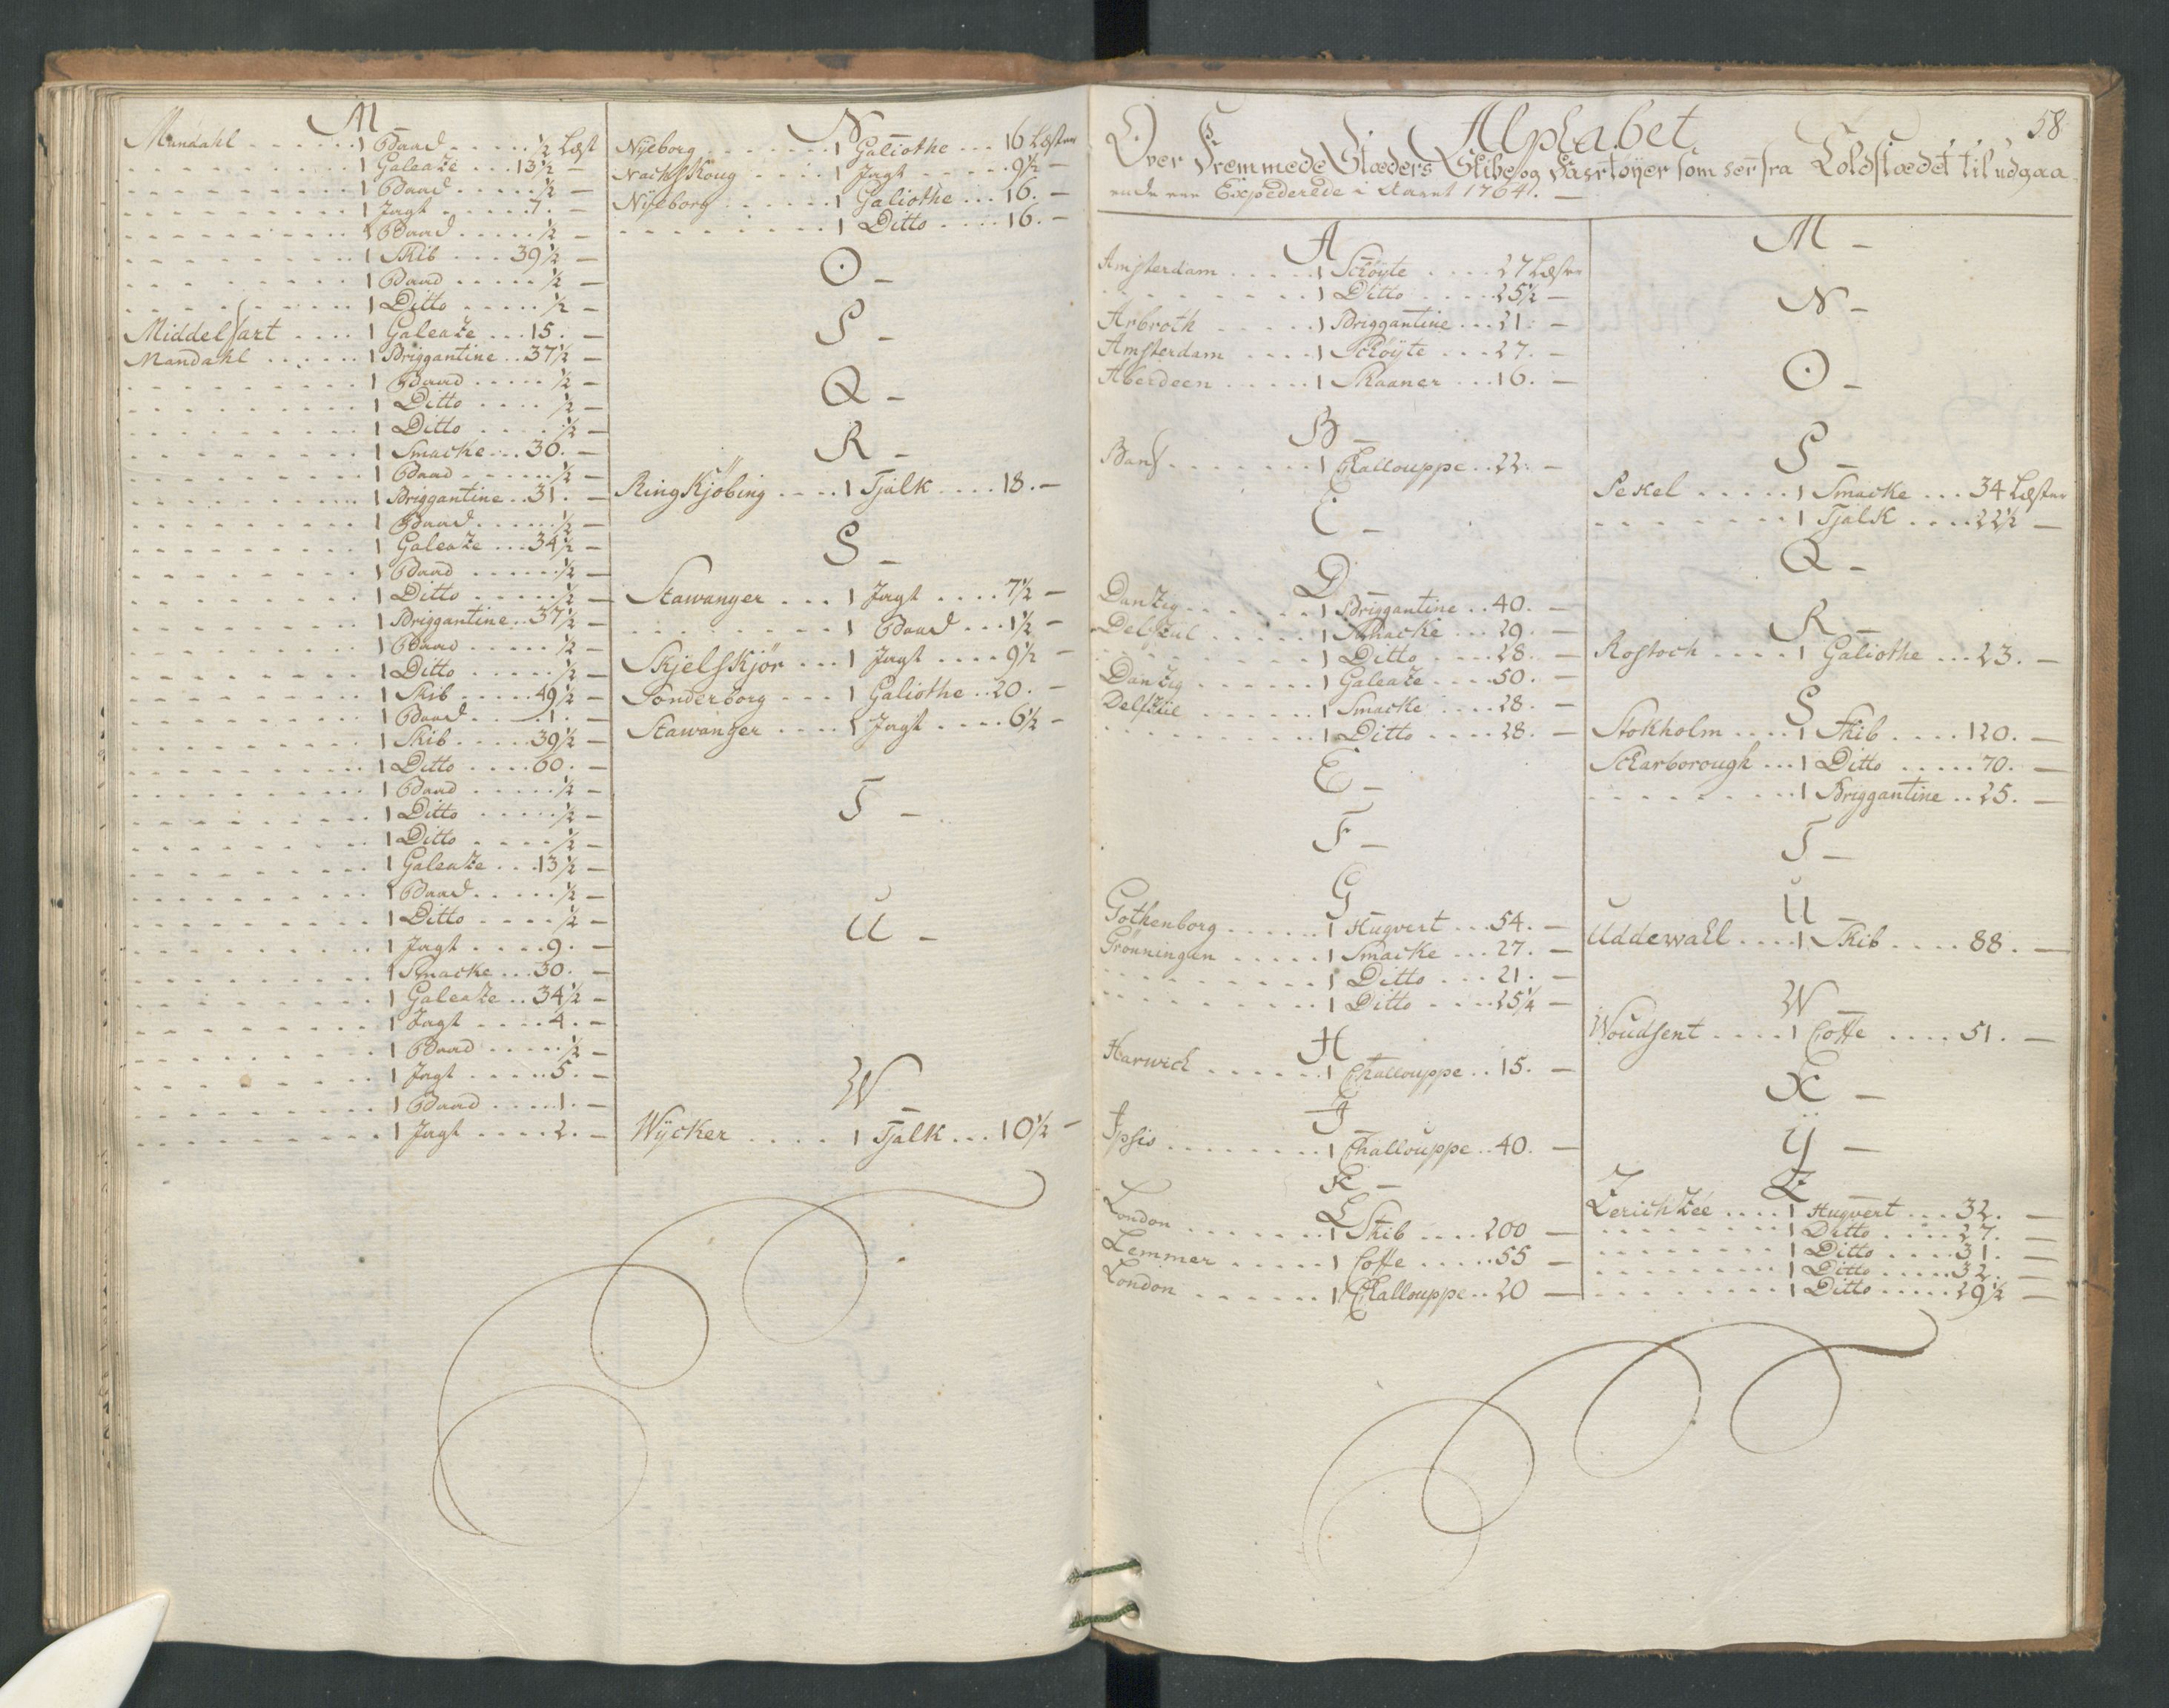 M
Mandahl . . . . . . 1 Baad . . . . . ½ Læst
- - - - - - - - 1 Galeaze . . . 13½ -
- - - - - - - - 1 Baad . . . . . ½ -
- - - - - - - - 1 Jagt . . . . . 7. -
- - - - - - - - 1 Baad . . . . . ½ -
- - - - - - - - 1 Skib . . . 39½ -
- - - - - - - - 1 Baad . . . . . ½ -
- - - - - - - - 1 Ditto . . . . . ½ -
Middelfart . . . . 1 Galeaze . . . 15. -
Mandahl . . . . . . 1 Briggantine . . 37½ -
- - - - - - - - 1 Baad . . . . . ½ -
- - - - - - - - 1 Ditto . . . . ½ -
- - - - - - - - 1 Ditto . . . . ½ -
- - - - - - - - 1 Smacke . . . 30. -
- - - - - - - - 1 Baad . . . . . ½ -
- - - - - - - - 1 Briggantine . . 31. -
- - - - - - - - 1 Baad . . . . . ½ -
- - - - - - - - 1 Galeaze . . . 34½ -
- - - - - - - - 1 Baad . . . . . ½ -
- - - - - - - - 1 Ditto . . . . . ½ -
- - - - - - - - 1 Briggantine . . 37½ -
- - - - - - - - 1 Baad . . . . . ½ -
- - - - - - - - 1 Ditto . . . . . ½ -
- - - - - - - - 1 Skib . . . . . 49½ -
- - - - - - - - 1 Baad . . . . 1. -
- - - - - - - - 1 Skib . . . . . 39½ -
- - - - - - - - 1 Ditto . . . . 60. -
- - - - - - - - 1 Baad . . . . . ½ -
- - - - - - - - 1 Ditto . . . . . ½ -
- - - - - - - - 1 Ditto . . . . . ½ -
- - - - - - - - 1 Galeaze . . . 13½ -
- - - - - - - - 1 Baad . . . . . ½ -
- - - - - - - - 1 Ditto . . . . . ½ -
- - - - - - - - 1 Jagt . . . . 9. -
- - - - - - - - 1 Smacke . . . 30. -
- - - - - - - - 1 Galeaze . . 34½ -
- - - - - - - - 1 Jagt . . . . 4. -
- - - - - - - - 1 Baad . . . . . ½ -
- - - - - - - - 1 Jagt . . . . . 5. -
- - - - - - - - 1 Baad . . . . . 1. -
- - - - - - - - 1 Jagt . . . . 2. -
N
Nyeborg . . . . . . . 1 Galiothe . . . 16 Læster
Nachskoug . . . . 1 Jagt . . . . . 9½ -
Nyeborg . . . . . . 1 Galiothe . . . 16. -
- - - - - - - - 1 Ditto . . . . 16. -
O -
P -
Q -
R -
Ringkjöbing . . . . 1 Tjalk . . . . 18. -
S -
Stawanger . . . 1 Jagt . . . . 7½ -
- - - - - - - - 1 Baad . . . 1½ -
Skjelskjør . . . 1 Jagt . . . . 9½ -
Sonderborg . . . 1 Galiothe . . 20. -
Stawanger . . . . 1 Jagt . . . . 6½ -
T -
U -
W -
Wÿcker . . . . 1 Tjalk . . . 10½ -
58.
Alphabet,
Over Fremmede Stæders Skibe og Fartøyer som her fra Toldstædet til udgaa-
ende ere Expederede i Aaret 1764. -
A
Amsterdam . . . . . 1 Schöyte . . . . 27 Læster
- - - - - - - - 1 Ditto . . . . 25½ -
Arbroth . . . . . 1 Briggantine . . . 21. -
Amsterdam . . . . 1 Schöyte . . . 27. -
Aberdeen . . . . . 1 Skaaner . . . 16. -
B -
Banf . . . . . . . 1 Challouppe . . 22. -
C -
D -
Danzig . . . . . . 1 Briggantine . . 40. -
Delfzul . . . . . . 1 Smacke . . . 29. -
- - - - - - - - 1 Ditto . . . . 28. -
Danzig . . . . . . 1 Galeaze . . . . 50. -
Delfziel . . . . . . 1 Smacke . . . . 28. -
- - - - - - - - 1 Ditto . . . . 28. -
E -
F -
G -
Gothenborg . . . . . . 1 Hugvert . . . 54. -
Gronningen . . . . . 1 Smacke . . . 27. -
- - - - - - - - 1 Ditto . . . 21. -
- - - - - - - - 1 Ditto . . . . 25¼ -
H -
Harwich . . . . . . 1 Challouppe . . 15. -
J -
Ipsis . . . . . . . . 1 Challouppe . . 40. -
K -
L
London . . . . . . . 1 Skib . . . . 200 -
Lemmer . . . . . 1 Coffe . . . . . 55 -
London . . . . . . 1 Challouppe . . 20 -
M -
N -
O -
P -
Pekel . . . . . 1 Smacke . . . 34 Læster
- - - - - - - - 1 Tjalk . . . . 22½ -
Q -
R -
Rostoch . . . . 1 Galiothe . . . 23. -
S
Stokholm . . . . 1 Skib . . . . 120. -
Scharborough . . . 1 Ditto . . . . . 70. -
- - - - - - - - 1 Briggantine . . 25. -
T -
U -
Uddewall . . . . 1 Skib . . . . 88. -
W -
Woudsent . . . . 1 Coffe . . . . 51. -
X -
Y -
Z -
Zerichzée . . . . 1 Hugvert . . . 32. -
- - - - - - - - 1 Ditto . . . . 27. -
- - - - - - - - 1 Ditto . . . . 31. -
- - - - - - - - 1 Ditto . . . . . 32. -
- - - - - - - - 1 Ditto . . . . . 29½ -